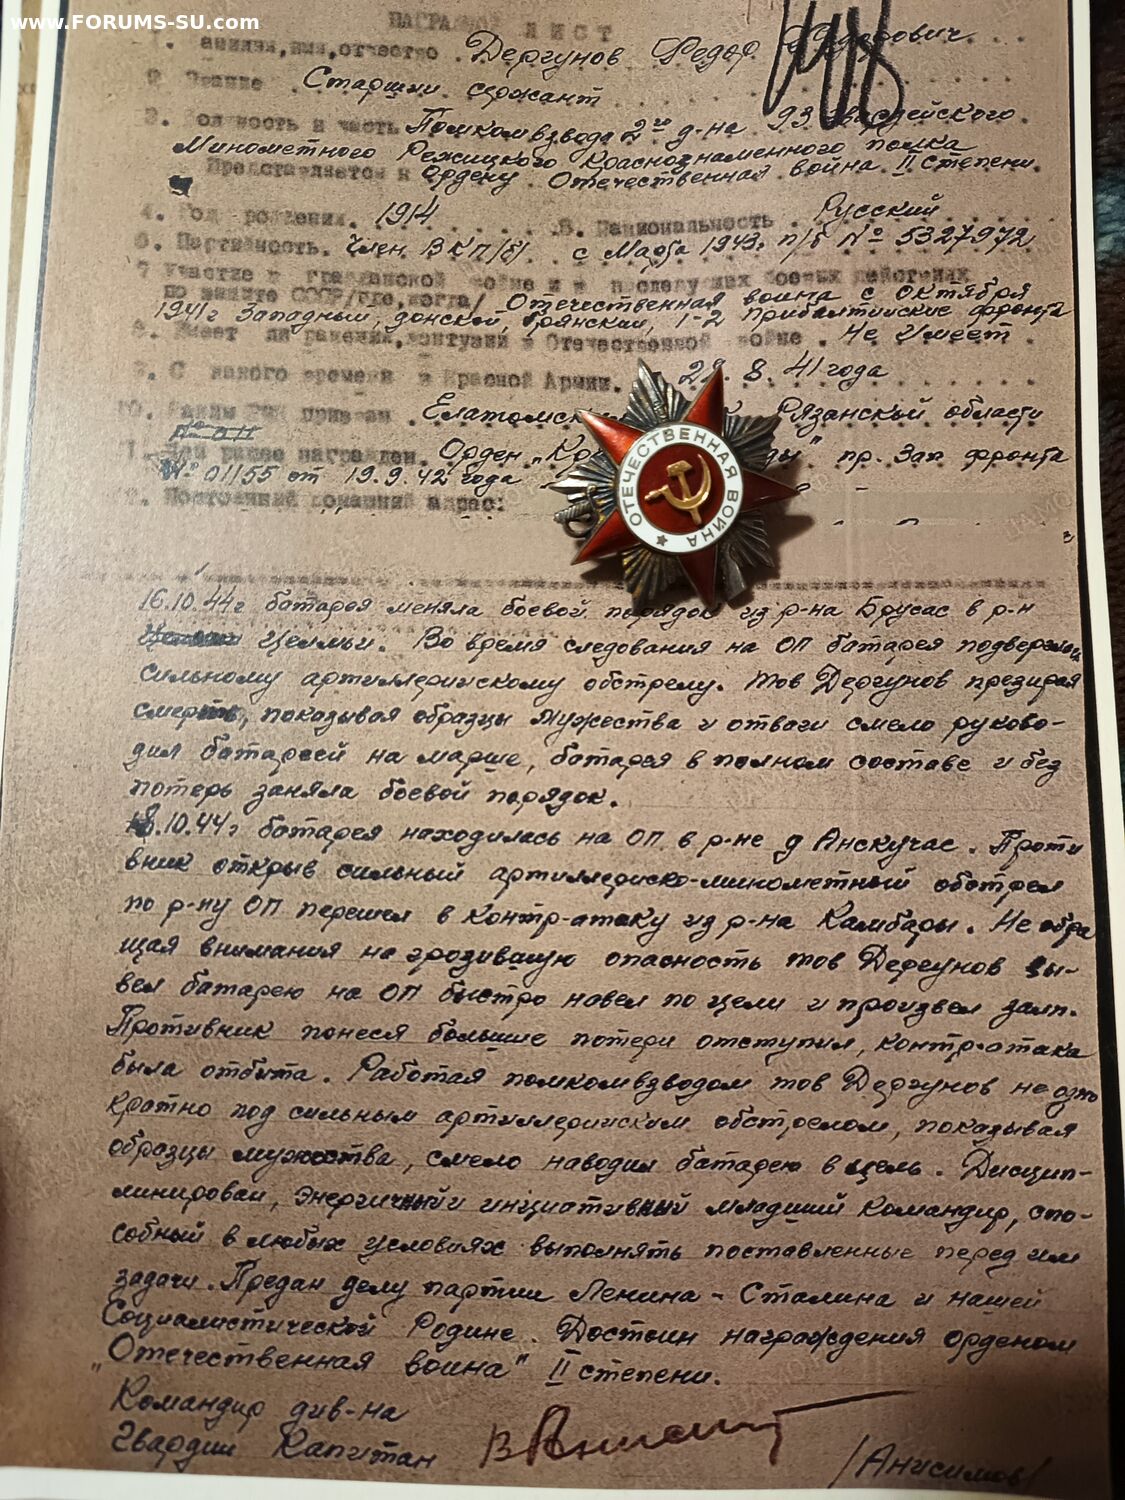 www.FORUMS-SU.com
НАГРАДНОЙ ЛИСТ
1. амилия,имя,отчество Дергунов Федор Федорович
2. Звание Старший сержант
3. Должность и часть Помкомвзвода 2го д-на 93 Гвардейского
Минометного Режицкого Краснознаменного полка
Представляется к Ордену Отечественная война II степени.
4. Год рождения. 1914 5. Национальность Русский
6. Партийность. Член ВКП/б/. с Марта 1943г п/б № 5327972
7 Участие в гражданской войне и в последующих боевых действиях
по защите СССР/где,когда/ Отечественная война с октября
1941г Западный, донской, Брянский, 1-2 прибалтийские фронта
8. Имеет ли ранения,контузии в Отечественной войне. Не имеет.
9. С какого времени в Красной Армии. 8. 41 года
10. Каким РВК призван. Рязанской области
11. Чем ранее награжден. Орден „ " пр. Зап фронта
№ 01155 от 19.9.42 года
12. Постоянный домашний адрес:
ОТЕЧЕСТВЕННАЯ ВОЙНА
16.10.44г батарея меняла боевой порядок из р-на Брусас в р-н
Целмьи. Во время следования на ОП батарея подверглась
сильному артиллерийскому обстрелу. Тов Дергунов презирая
смерть, показывая образцы мужества и отваги смело руково-
дил батареей на марше, батарея в полном составе и без
потерь заняла боевой порядок.
18.10.44г батарея находилась на ОП в р-не д Анскучас. Проти
вник открыв сильный артиллериско-минометный обстрел
по р-ну ОП перешел в контр-атаку из р-на Камбары. Не обра
щая внимания на грозившую опасность тов Дергунов вы-
вел батарею на ОП быстро навел по цели и произвел залп.
Противник понеся большие потери отступил, контр-атака
была отбита. Работая помкомвзводом тов Дергунов не одно
кратно под сильным артиллерийским обстрелом, показывая
образцы мужества, смело наводил батарею в цель. Дисцип-
линирован, энергичный и инициативный младший командир, спо-
собный в любых условиях выполнять поставленные перед им
задачи. Предан делу партии Ленина - Сталина и нашей
Социалистической Родине. Достоин награждения орденом
„Отечественная война" II степени.
Командир див-на
Гвардии Капитан
/Анисимов/